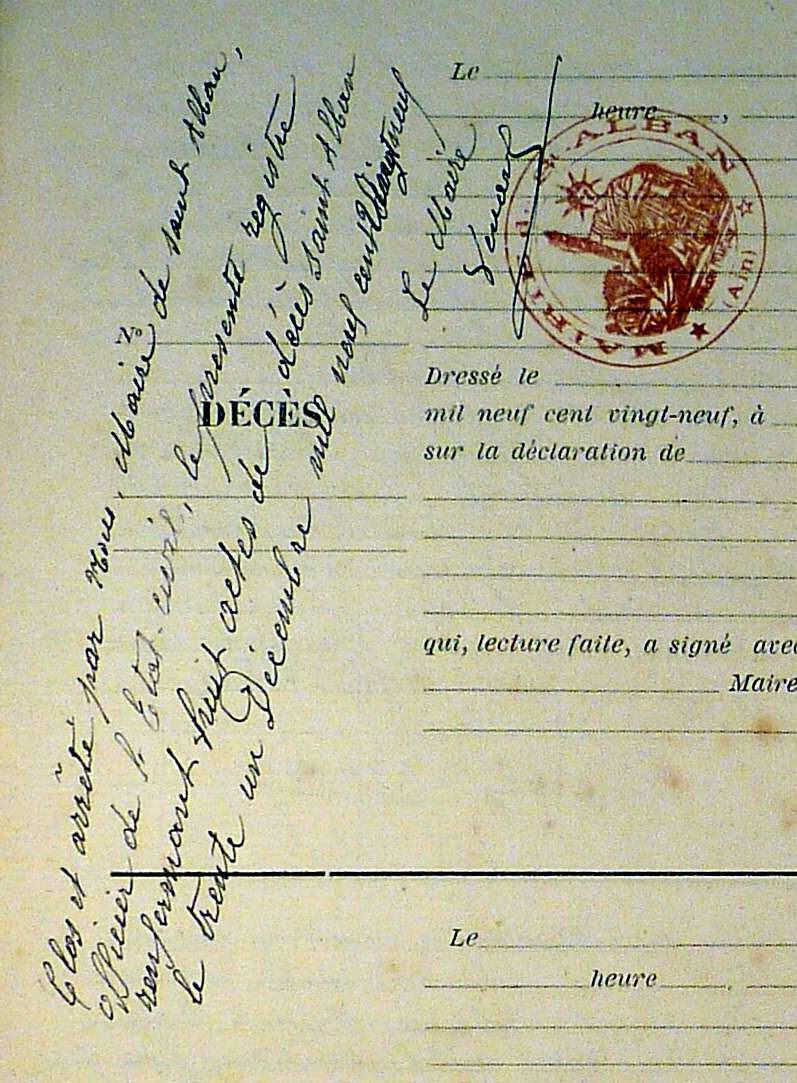 Clos et arrêté par Nous, Maire de saint Alban,
officier de l'Etat-civil, le présente registre
renfermant huit actes de décès à
décès saint Alban
le trente un Décembre mil neuf cent vingt neuf
Le Maire
MAIRIE D. St ALBAN
(Ain)
DÉCÈS
Le
heure ,
Dressé le
mil neuf cent vingt-neuf, à
sur la déclaration de
qui, lecture faite, a signé avec
Maire
Le
heure ,